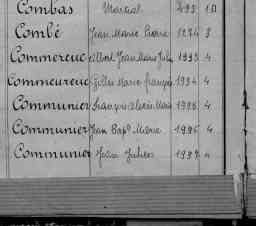 Combas Martial 1893 1D
Combé Jean Marie Pierre 1274 3
Commereuc Albert Jean Marie Julien 1993 4
Commeureuc Gilles Marie François 1994 4
Communier François Alexis Marie 1995 4
Communier Jean Bapt Marie 1996 4
Communier Jean Julien 1997 4